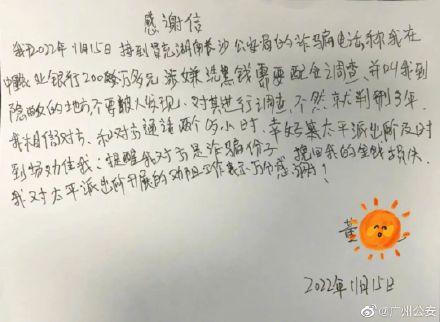 感谢信
我于2022年11月15日接到冒充湖南长沙公安局的诈骗电话称我在
中国农业银行200多万多元涉嫌洗黑钱需要配合调查，并叫我到
隐蔽的地方不要被人发现，对其进行调查，不然就判刑3年。
我相信对方，和对方通话两个Q小时，幸好太平派出所及时
到场劝住我，提醒我对方是诈骗份子，挽回我的金钱损失，
我对太平派出所开展的劝阻工作表示万分感谢！
董
2022年11月15日
@广州公安